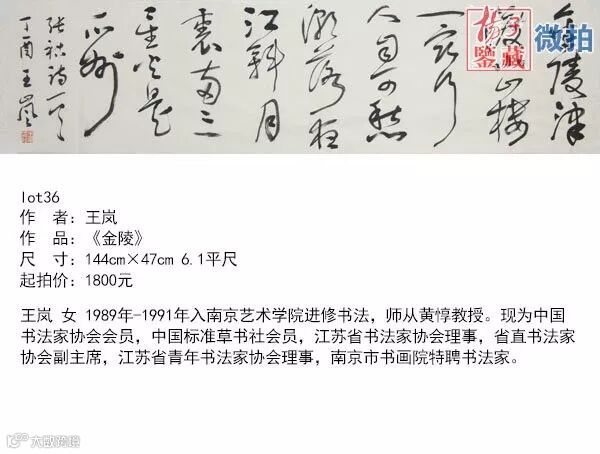 金陵津
渡小山樓
一宿行
人自可愁
潮落夜
江斜月
裏两三
星火是
瓜州
張祜詩一首
丁酉 王嵐
鑒藏
微拍
lot36
作 者：王岚
作 品：《金陵》
尺 寸：144cm×47cm 6.1平尺
起拍价：1800元
王岚 女 1989年-1991年入南京艺术学院进修书法，师从黄惇教授。现为中国
书法家协会会员，中国标准草书社会员，江苏省书法家协会理事，省直书法家
协会副主席，江苏省青年书法家协会理事，南京市书画院特聘书法家。
大数跨境